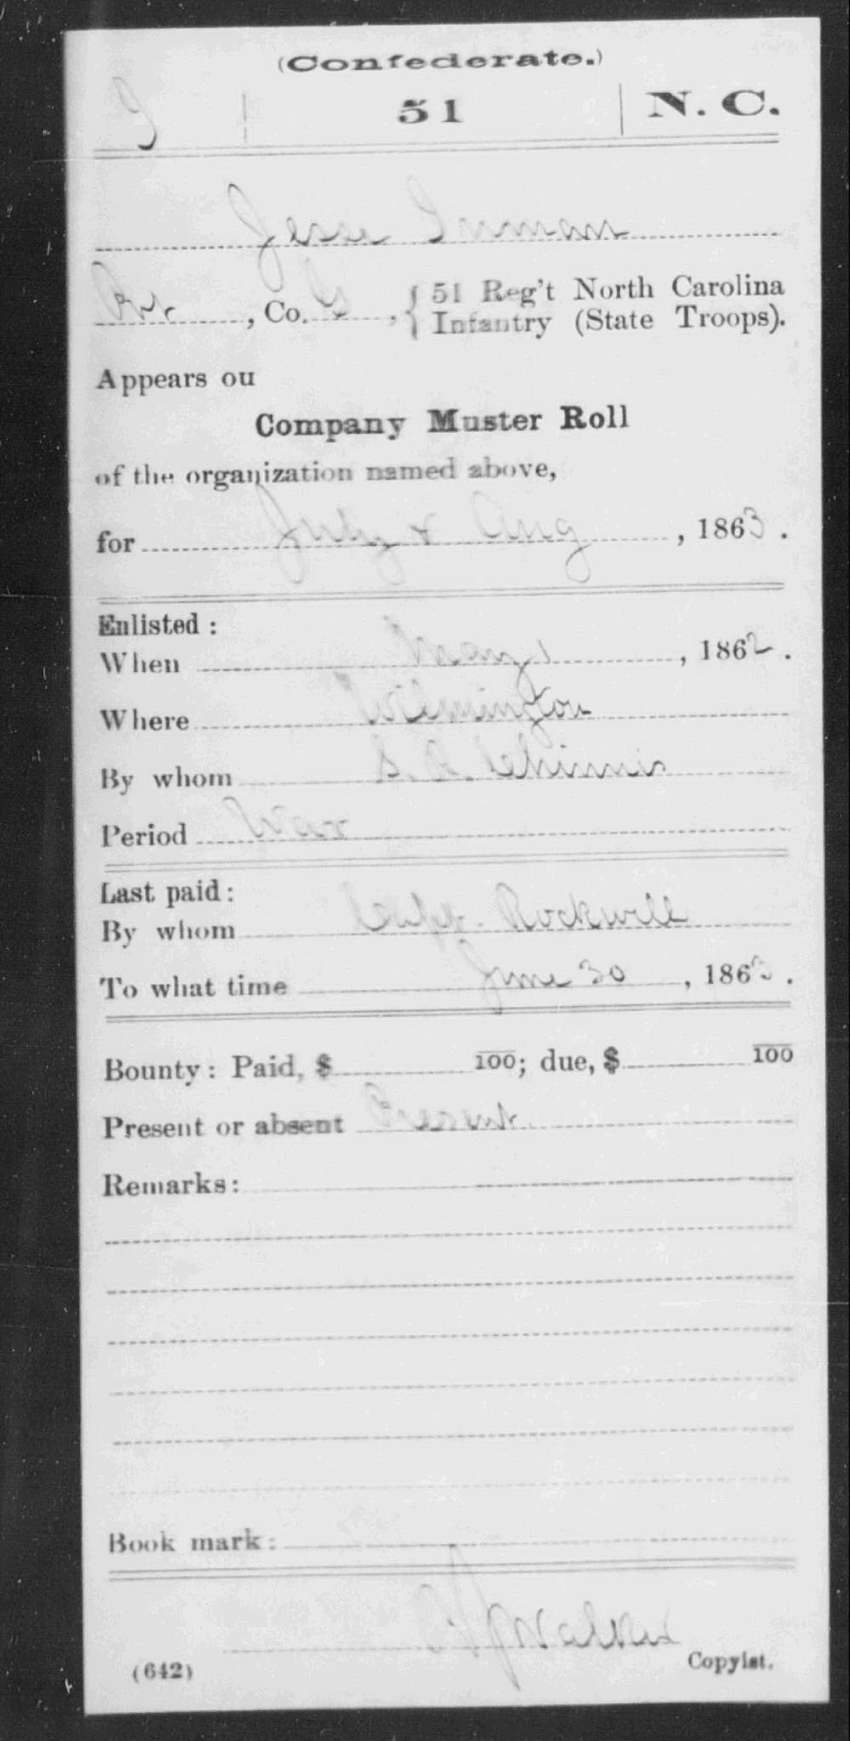 (Confederate.)
I 51 N. C.
Jesse Inman
Pvt, Co. G, { 51 Reg't North Carolina
Infantry (State Troops).
Appears on
Company Muster Roll
of the organization named above,
for July & Aug, 1863.
Enlisted:
When May 1, 1862.
Where Wilmington
By whom S. A. Chinnis
Period War
Last paid:
By whom Capt. Rockwell
To what time June 30, 1863.
Bounty: Paid, $ 100; due, $ 100
Present or absent Present
Remarks:
Book mark:
Walker
(642) Copyist.